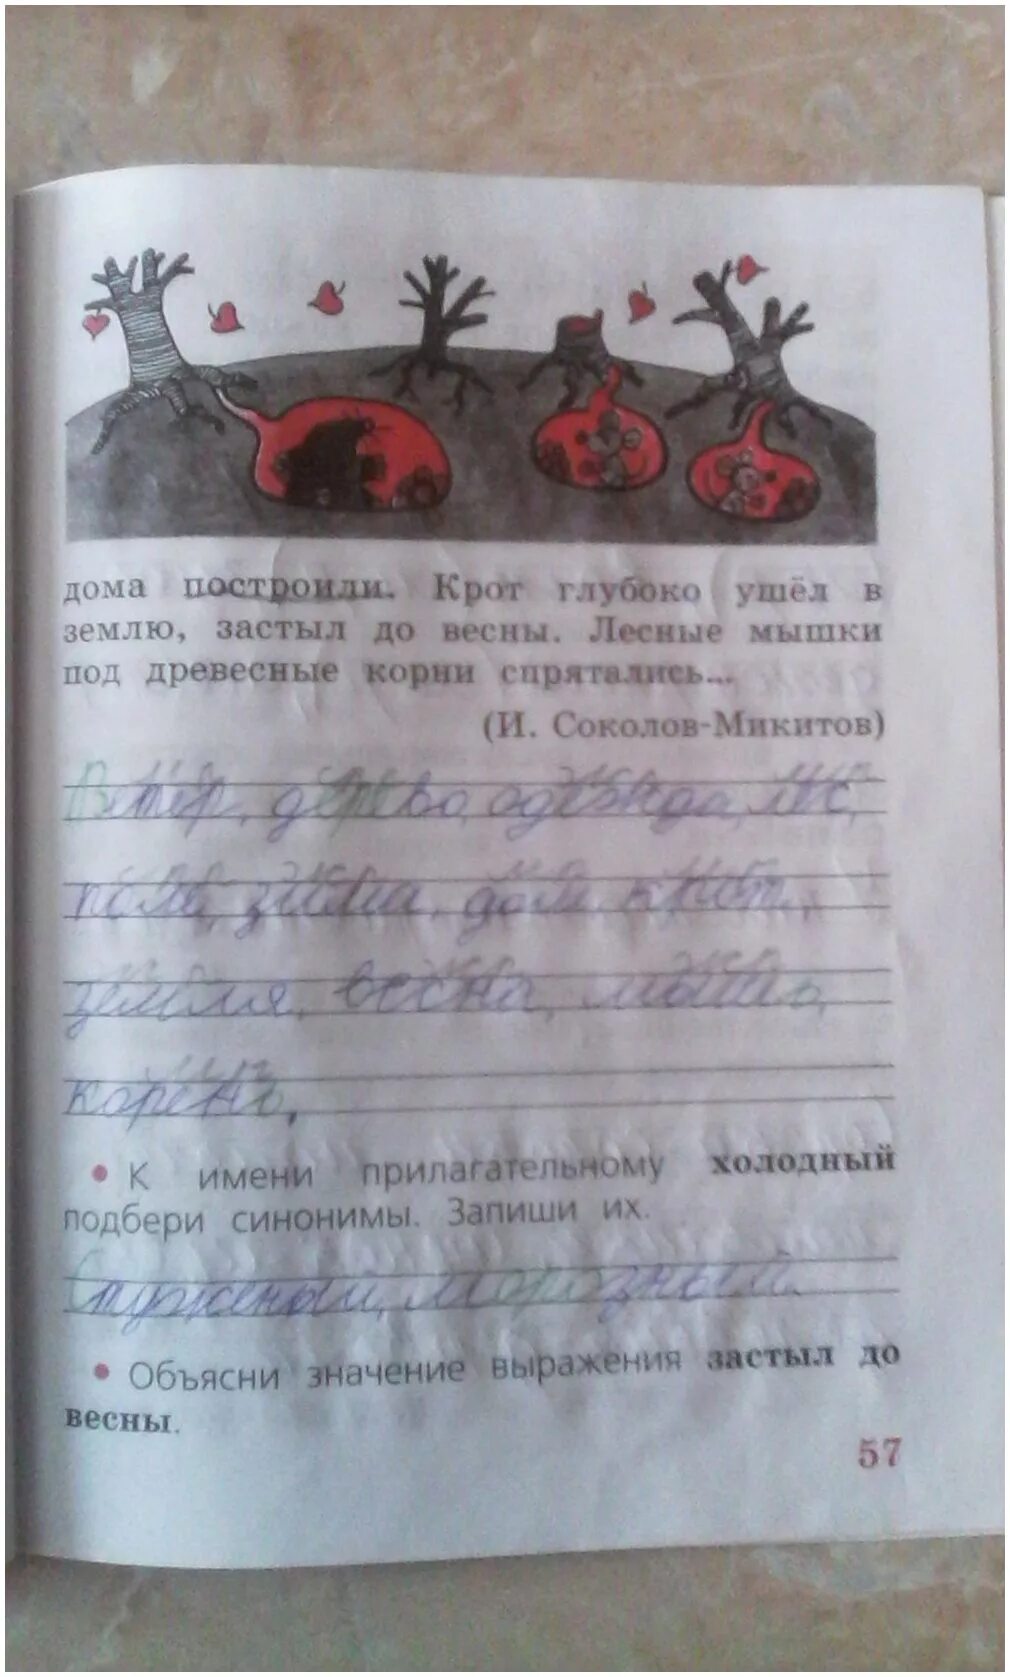 дома построили. Крот глубоко ушёл в
землю, застыл до весны. Лесные мышки
под древесные корни спрятались...
(И. Соколов-Микитов)
Ветер, дерево, одежда, лес,
поле, зима, дом, крот,
земля, весна, мышь,
корень.
• К имени прилагательному холодный
подбери синонимы. Запиши их.
Стужёный, морозный.
• Объясни значение выражения застыл до
весны.
57